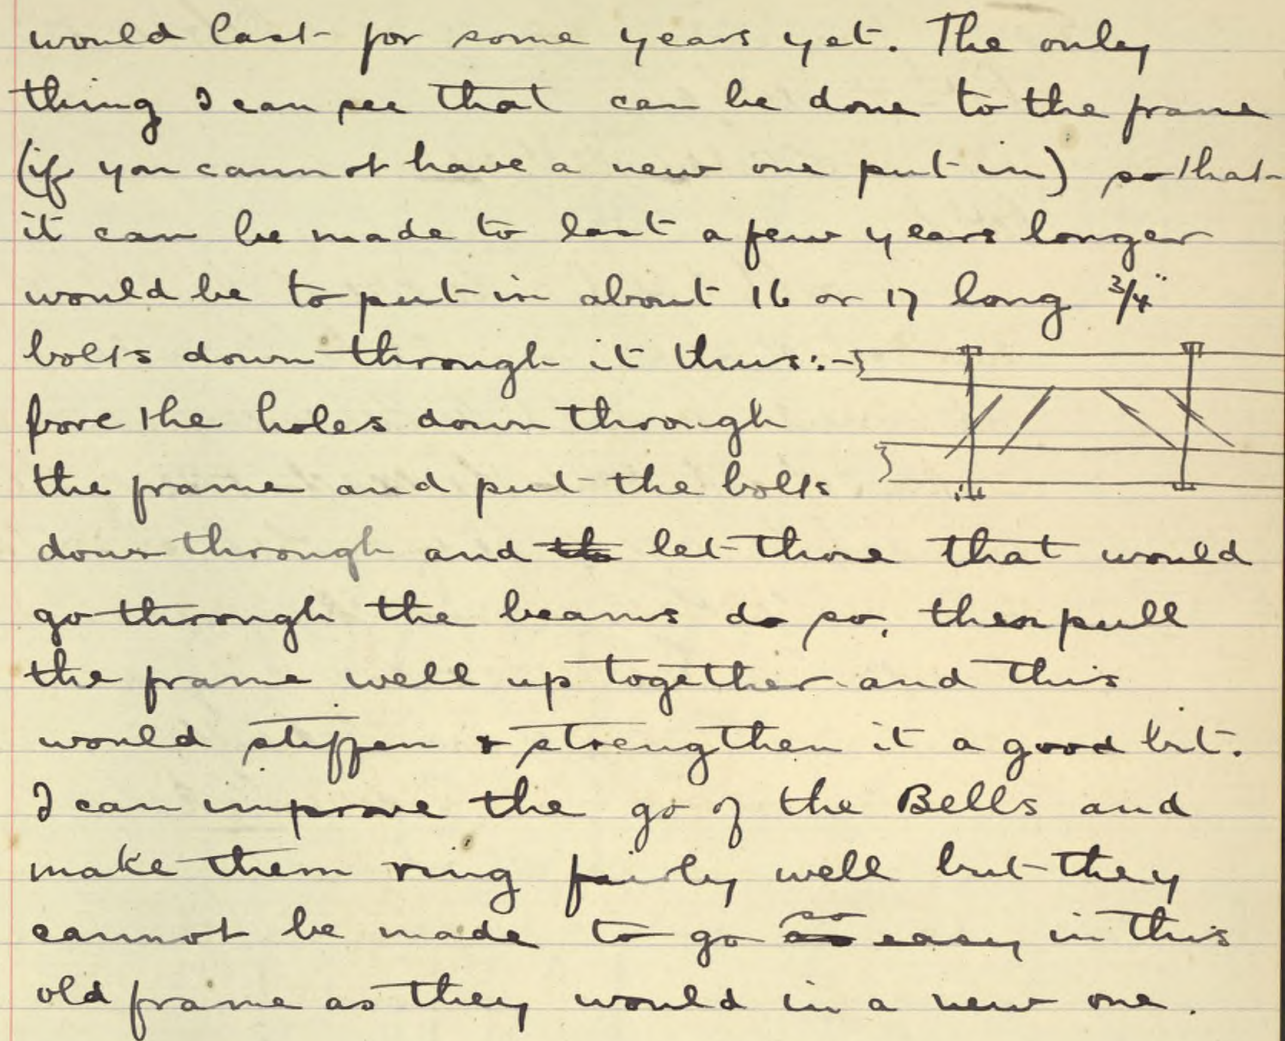 would last for some years yet. The only
thing I can see that can be done to the frame
(if you cannot have a new one put in) so that
it can be made to last a few years longer
would be to put in about 16 or 17 long 3/4"
bolts down through it thus:-
bore the holes down through
the frame and put the bolts
down through and the let those that would
go through the beams do so, then pull
the frame well up together and this
would stiffen & strengthen it a good bit.
I can improve the go of the Bells and
make them ring fairly well but they
cannot be made to go as so easy in this
old frame as they would in a new one.